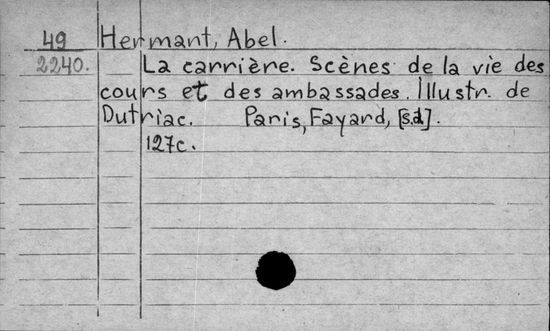 49 Hermant, Abel.
2240. La carrière. Scènes de la vie des
cours et des ambassades. Illustr. de
Dutriac. Paris, Fayard, [s.d.].
127c.